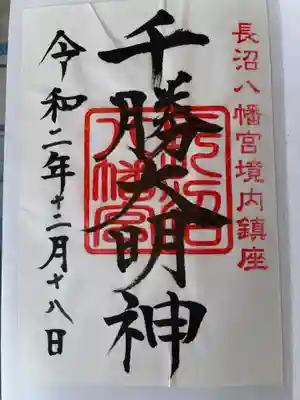 長沼八幡宮境内鎮座
千勝大明神
長沼八幡宮
令和二年十二月十八日